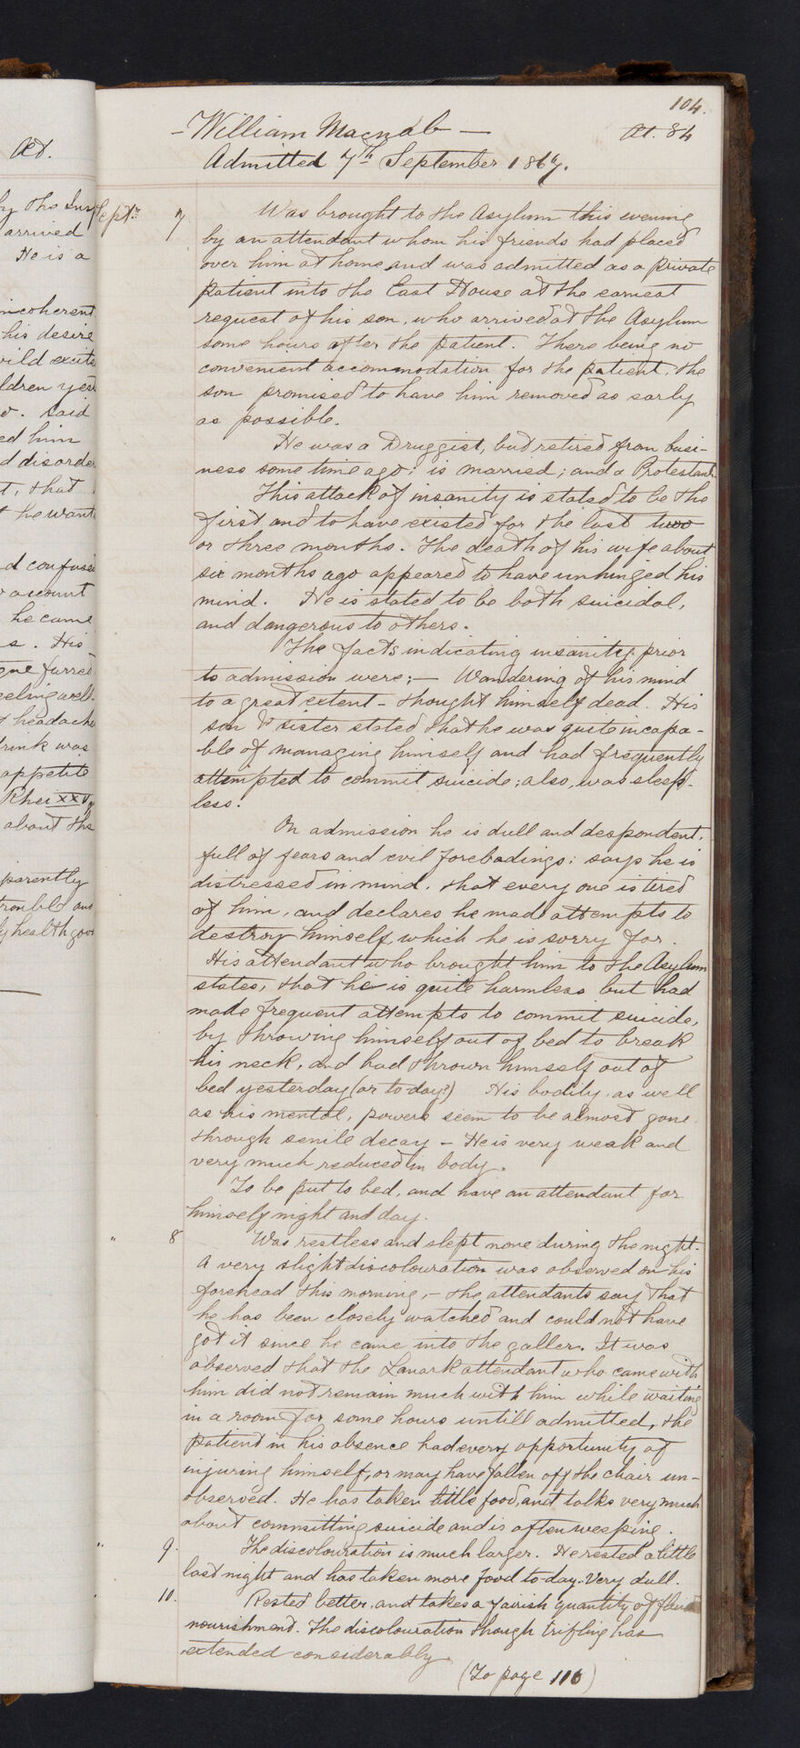 104.
- William Macnab -
Æt. 84
Admitted 7th September 1867.
Septr. 7 Was brought to the Asylum this evening
by an attendant whom his friends had placed
over him at home, and was admitted as a private
patient into the East House at the earnest
request of his son, who arrived at the Asylum
some hours after the patient. There being no
convenient accommodation for the patient, the
son promised to have him removed as early
as possible.
He was a Druggist, but retired from busi-
ness some time ago; is married; and a Protestant
This attack of insanity is stated to be the
first and to have existed for the last two
or three months. The death of his wife about
six months ago appeared to have unhinged his
mind. He is stated to be both suicidal,
and dangerous to others.
The facts indicating insanity prior
to admission were:- Wandering of his mind
to a great extent - thought himself dead. His
son & sister stated that he was quite incapa-
ble of managing himself and had frequently
attempted to commit suicide; also, was sleep-
less.
On admission he is dull and despondent.
full of fears and evil forebodings: says he is
distressed in mind. that every one is tired
of him, and declares he made attempts to
destroy himself, which he is sorry for.
His attendant who brought him to the Asylum
states, that he is quite harmless but had
made frequent attempts to commit suicide,
by throwing himself out of bed to break
his neck, and had thrown himself out of
bed yesterday (or to-day?) His bodily, as well
as his mental, powers seem to be almost gone
through senile decay - He is very weak and
very much reduced in body.
To be put to bed, and have an attendant for
himself night and day.
" 8 Was restless and slept none during the night.
A very slight discolouration was observed on his
forehead this morning, - the attendants say that
he has been closely watched and could not have
got it since he came into the gallery. It was
observed that the Lanark attendant who came with
him did not remain much with him while waiting
in a room for some hours untill admitted, the
patient in his absence had every opportunity of
injuring himself, or may have fallen off the chair un-
observed. He has taken little food, and talks very much
about committing suicide and is often weeping.
" 9. The discolouration is much larger. He rested a little
last night and has taken more food to-day. Very dull.
" 10. Rested better, and takes a fairish quantity of fluid
nourishment. The discolouration though trifling has
extended considerably
(To page 116)
Æt.
by the
arrived
He is a
incoherent
his desire
said
ed him
d disorder
t, that
he want
d confuse
account
he came
s. His
gue furred
eeling well
headache
rink was
appetite
Rhei xxv
about the
parently
trouble and
health good